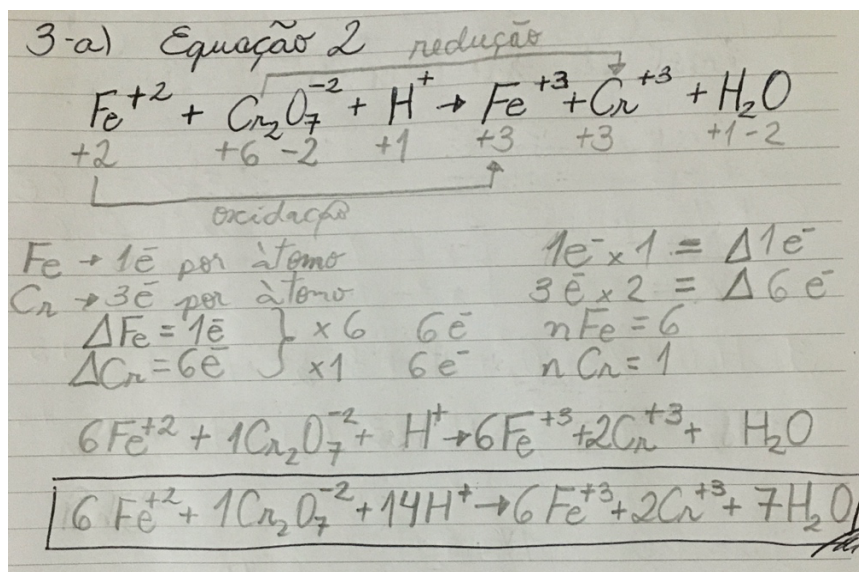 3-a) Equação 2 redução
Fe⁺² + Cr₂O₇⁻² + H⁺ → Fe⁺³ + Cr⁺³ + H₂O
+2 +6 -2 +1 +3 +3 +1 -2
oxidação
Fe → 1ē por àtomo 1e⁻ x 1 = Δ1e⁻
Cr → 3ē por àtomo 3ē x 2 = Δ6e⁻
ΔFe = 1ē } x6 6ē nFe = 6
ΔCr = 6ē x1 6e⁻ nCr = 1
6Fe⁺² + 1Cr₂O₇⁻² + H⁺ → 6Fe⁺³ + 2Cr⁺³ + H₂O
6Fe⁺² + 1Cr₂O₇⁻² + 14H⁺ → 6Fe⁺³ + 2Cr⁺³ + 7H₂O